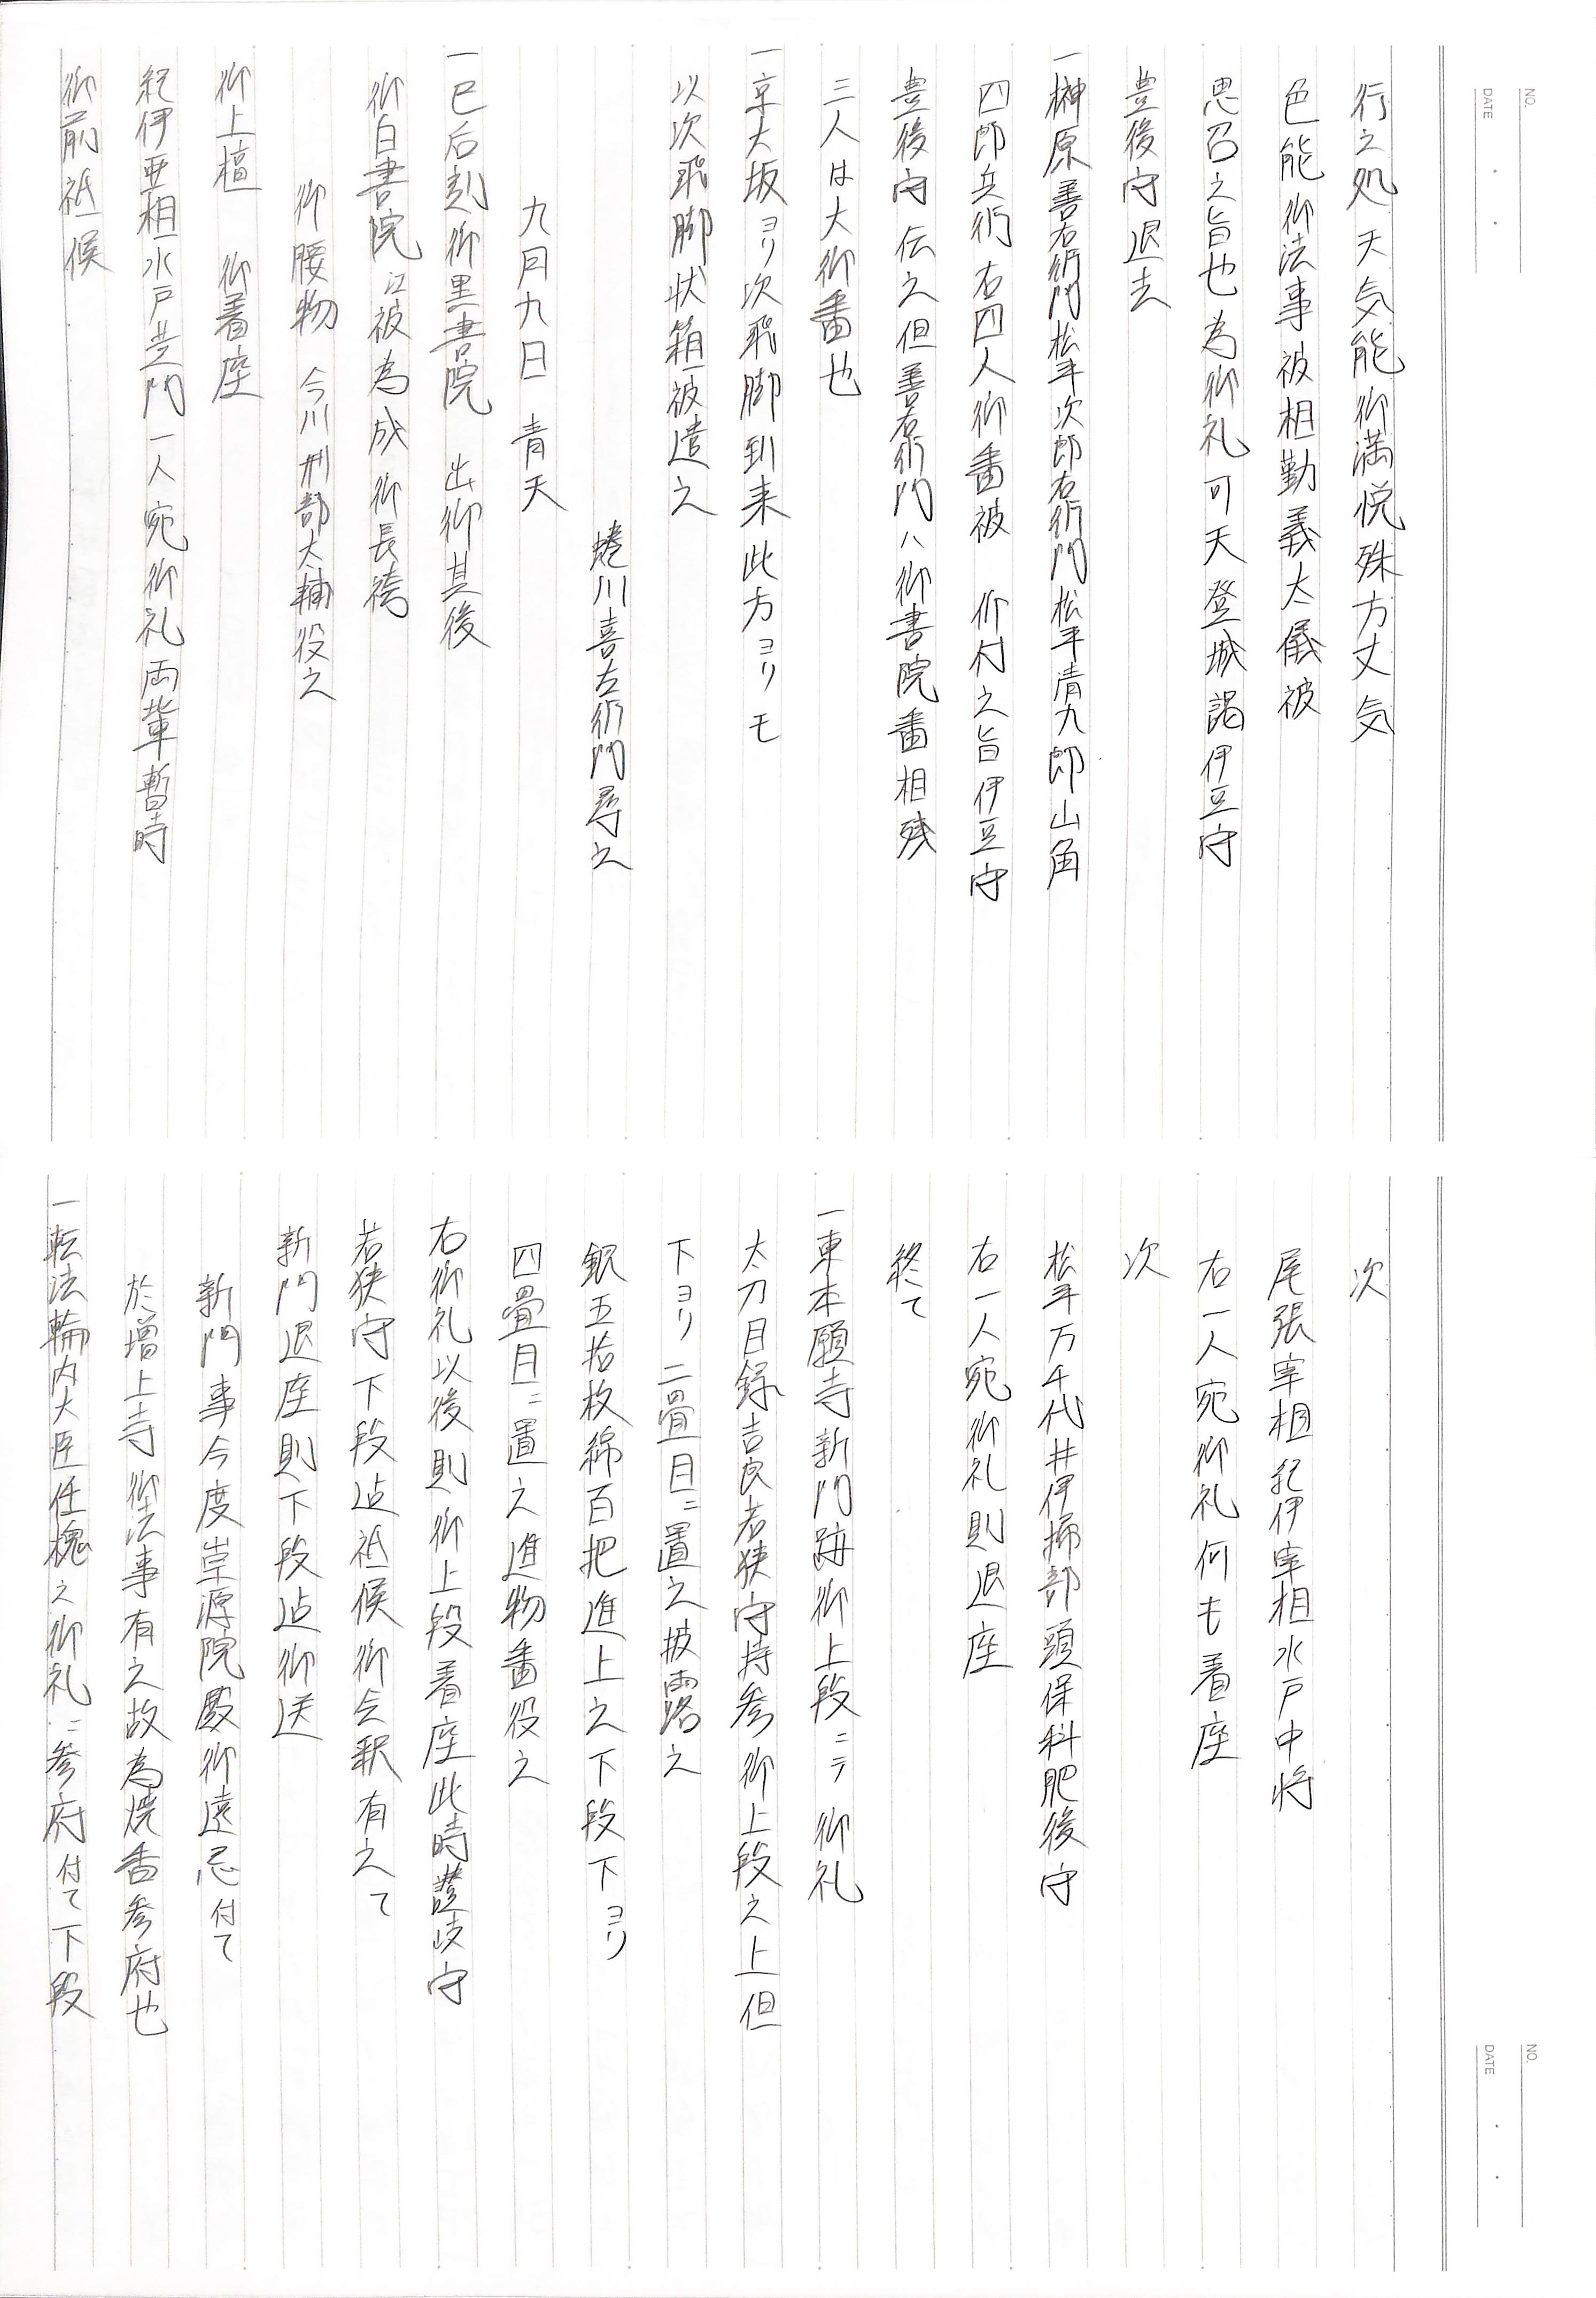 NO.
DATE
行之処 天気能御満悦殊方丈気
色能御法事被相勤義大儀被
思召之旨也為御礼可天登城謁伊豆守
豊後守退去
一榊原善右衛門松平次郎右衛門松平清九郎山角
四郎兵衛右四人御番被 仰付之旨伊豆守
豊後守伝之但善右衛門ハ御書院番相残
三人は大御番也
一京大坂ヨリ次飛脚到来此方ヨリモ
以次飛脚状箱被遣之
蜷川喜左衛門尋之
九月九日 青天
一巳后刻御黒書院 出御其後
御白書院江被為成御長袴
御腰物 今川刑部大輔役之
御上檀 御着座
紀伊亜相水戸黄門一人宛御礼両輩暫時
御前祗候
NO.
DATE
次
尾張宰相紀伊宰相水戸中将
右一人宛御礼何も着座
次
松平万千代井伊掃部頭保科肥後守
右一人宛御礼則退座
終て
一東本願寺新門跡御上段ニテ御礼
太刀目録吉良若狭守持参御上段之上但
下ヨリ二畳目ニ置之披露之
銀五拾枚綿百把進上之下段下ヨリ
四畳目ニ置之進物番役之
右御礼以後則御上段着座此時讃岐守
若狭守下段迠祗候御会釈有之て
新門退座則下段迠御送
新門事今度崇源院殿御遠忌付て
於増上寺御法事有之故為焼香参府也
一転法輪内大臣任槐之御礼ニ参府付て下段